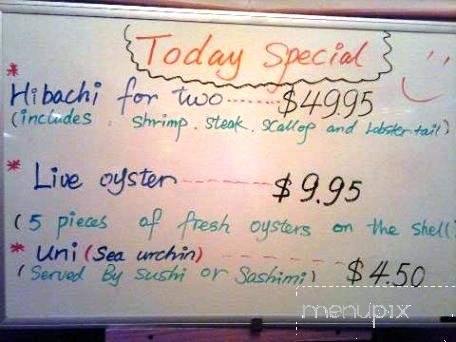 Today Special
* Hibachi for two ------ $49.95
(includes . shrimp . steak . scallop and lobster tail)
* Live oyster ------ $9.95
(5 pieces of fresh oysters on the shell)
* Uni (Sea urchin) ------ $4.50
(Served By sushi or Sashimi)
menupix